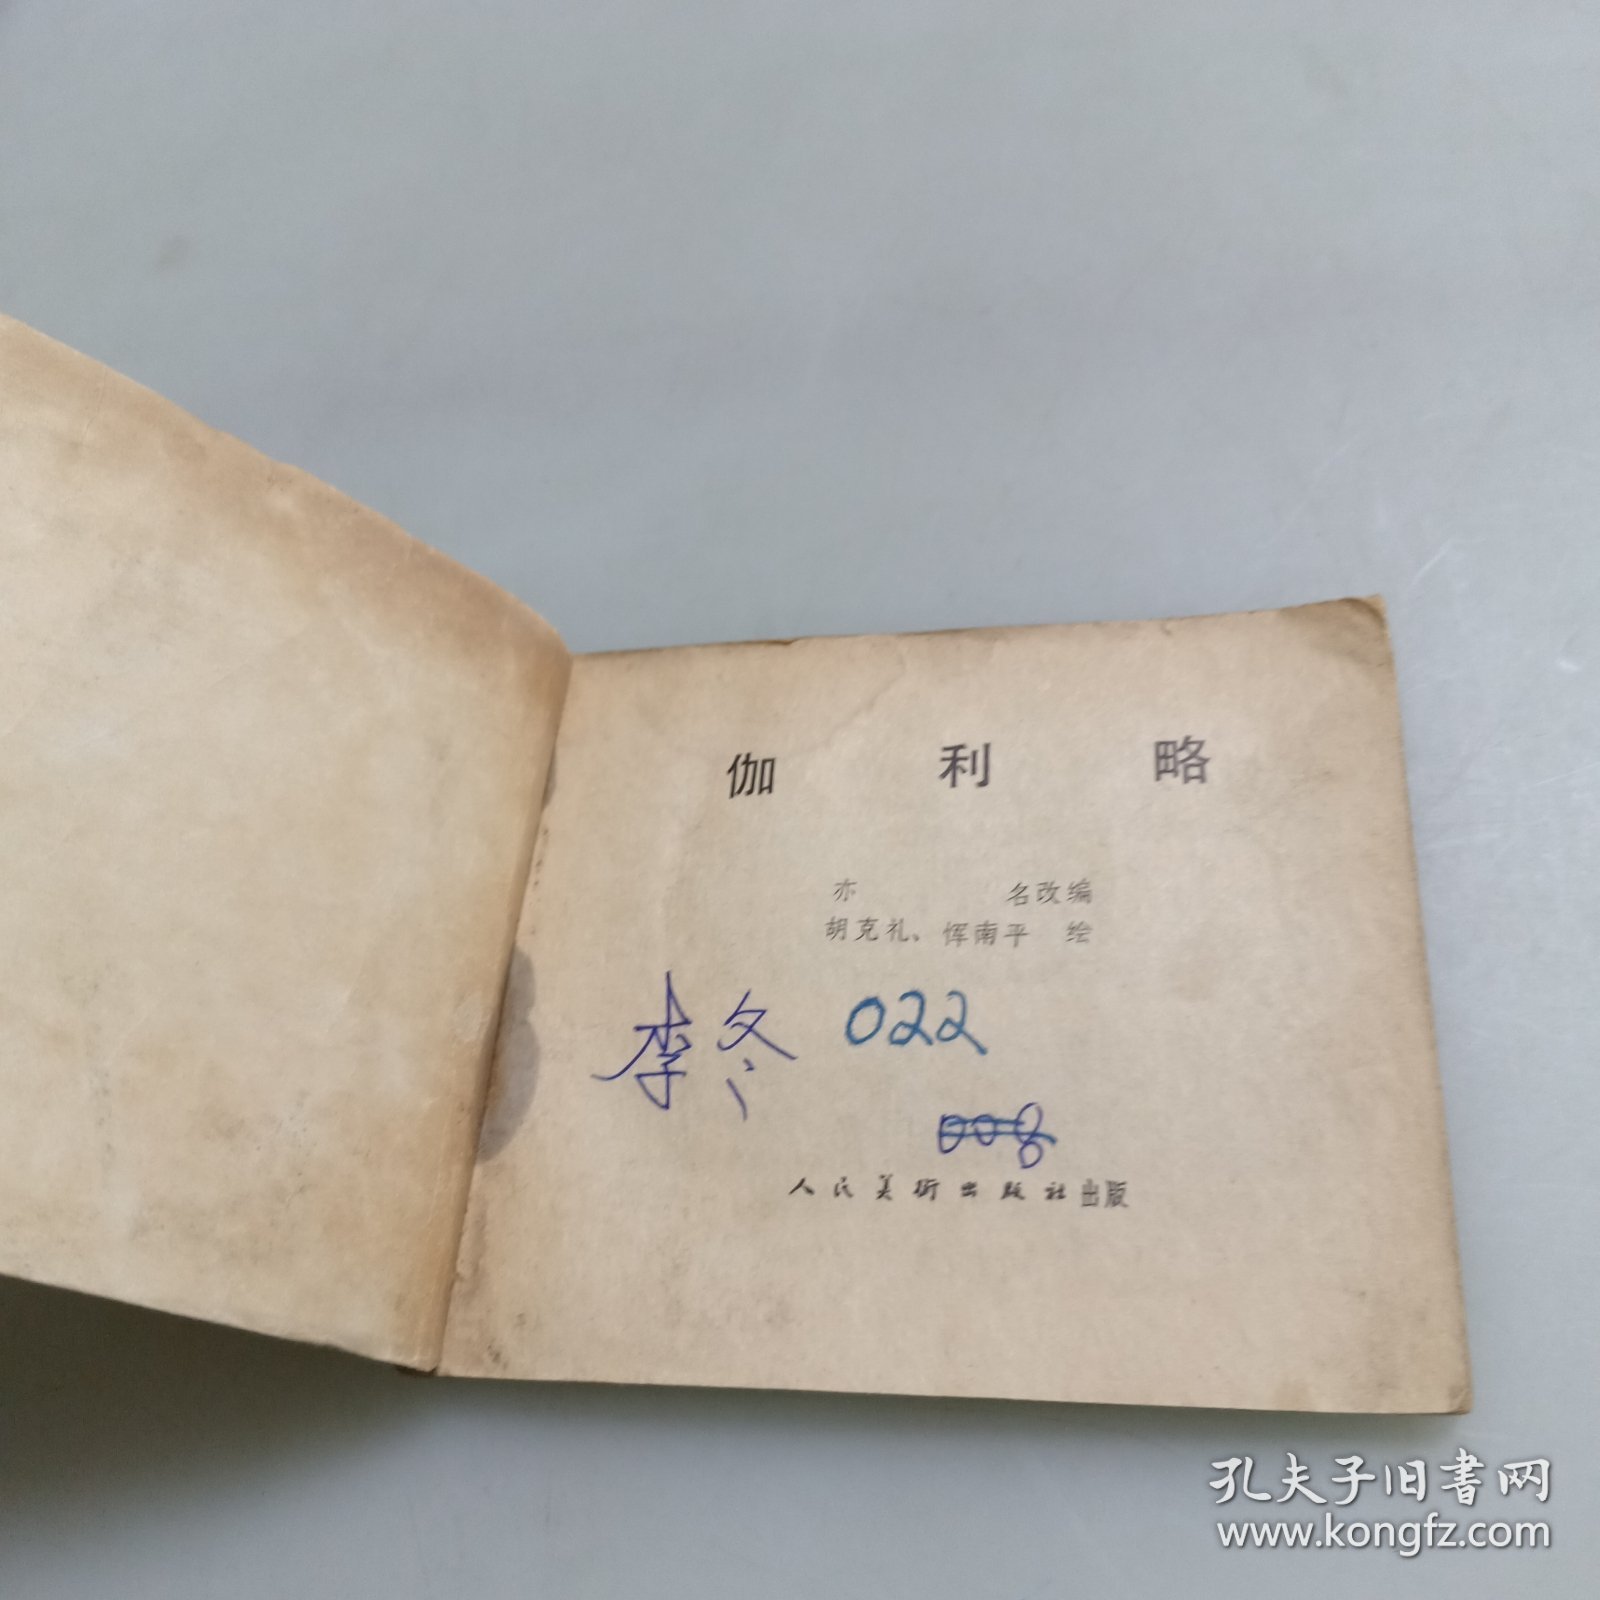 伽利略
亦 名改编
胡克礼、恽南平 绘
李冬 022
008
人民美術出版社出版
孔夫子旧书网
www.kongfz.com